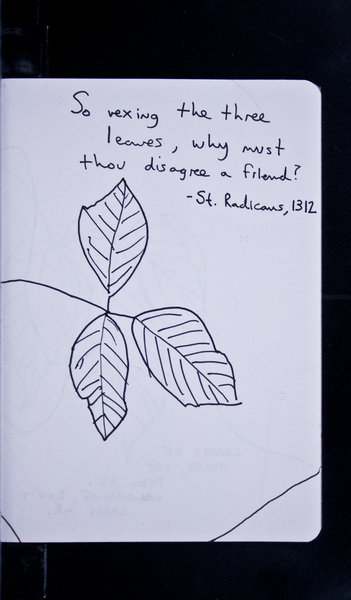 So vexing the three
leaves, why must
thou disagree a friend?
-St. Radicans, 1312